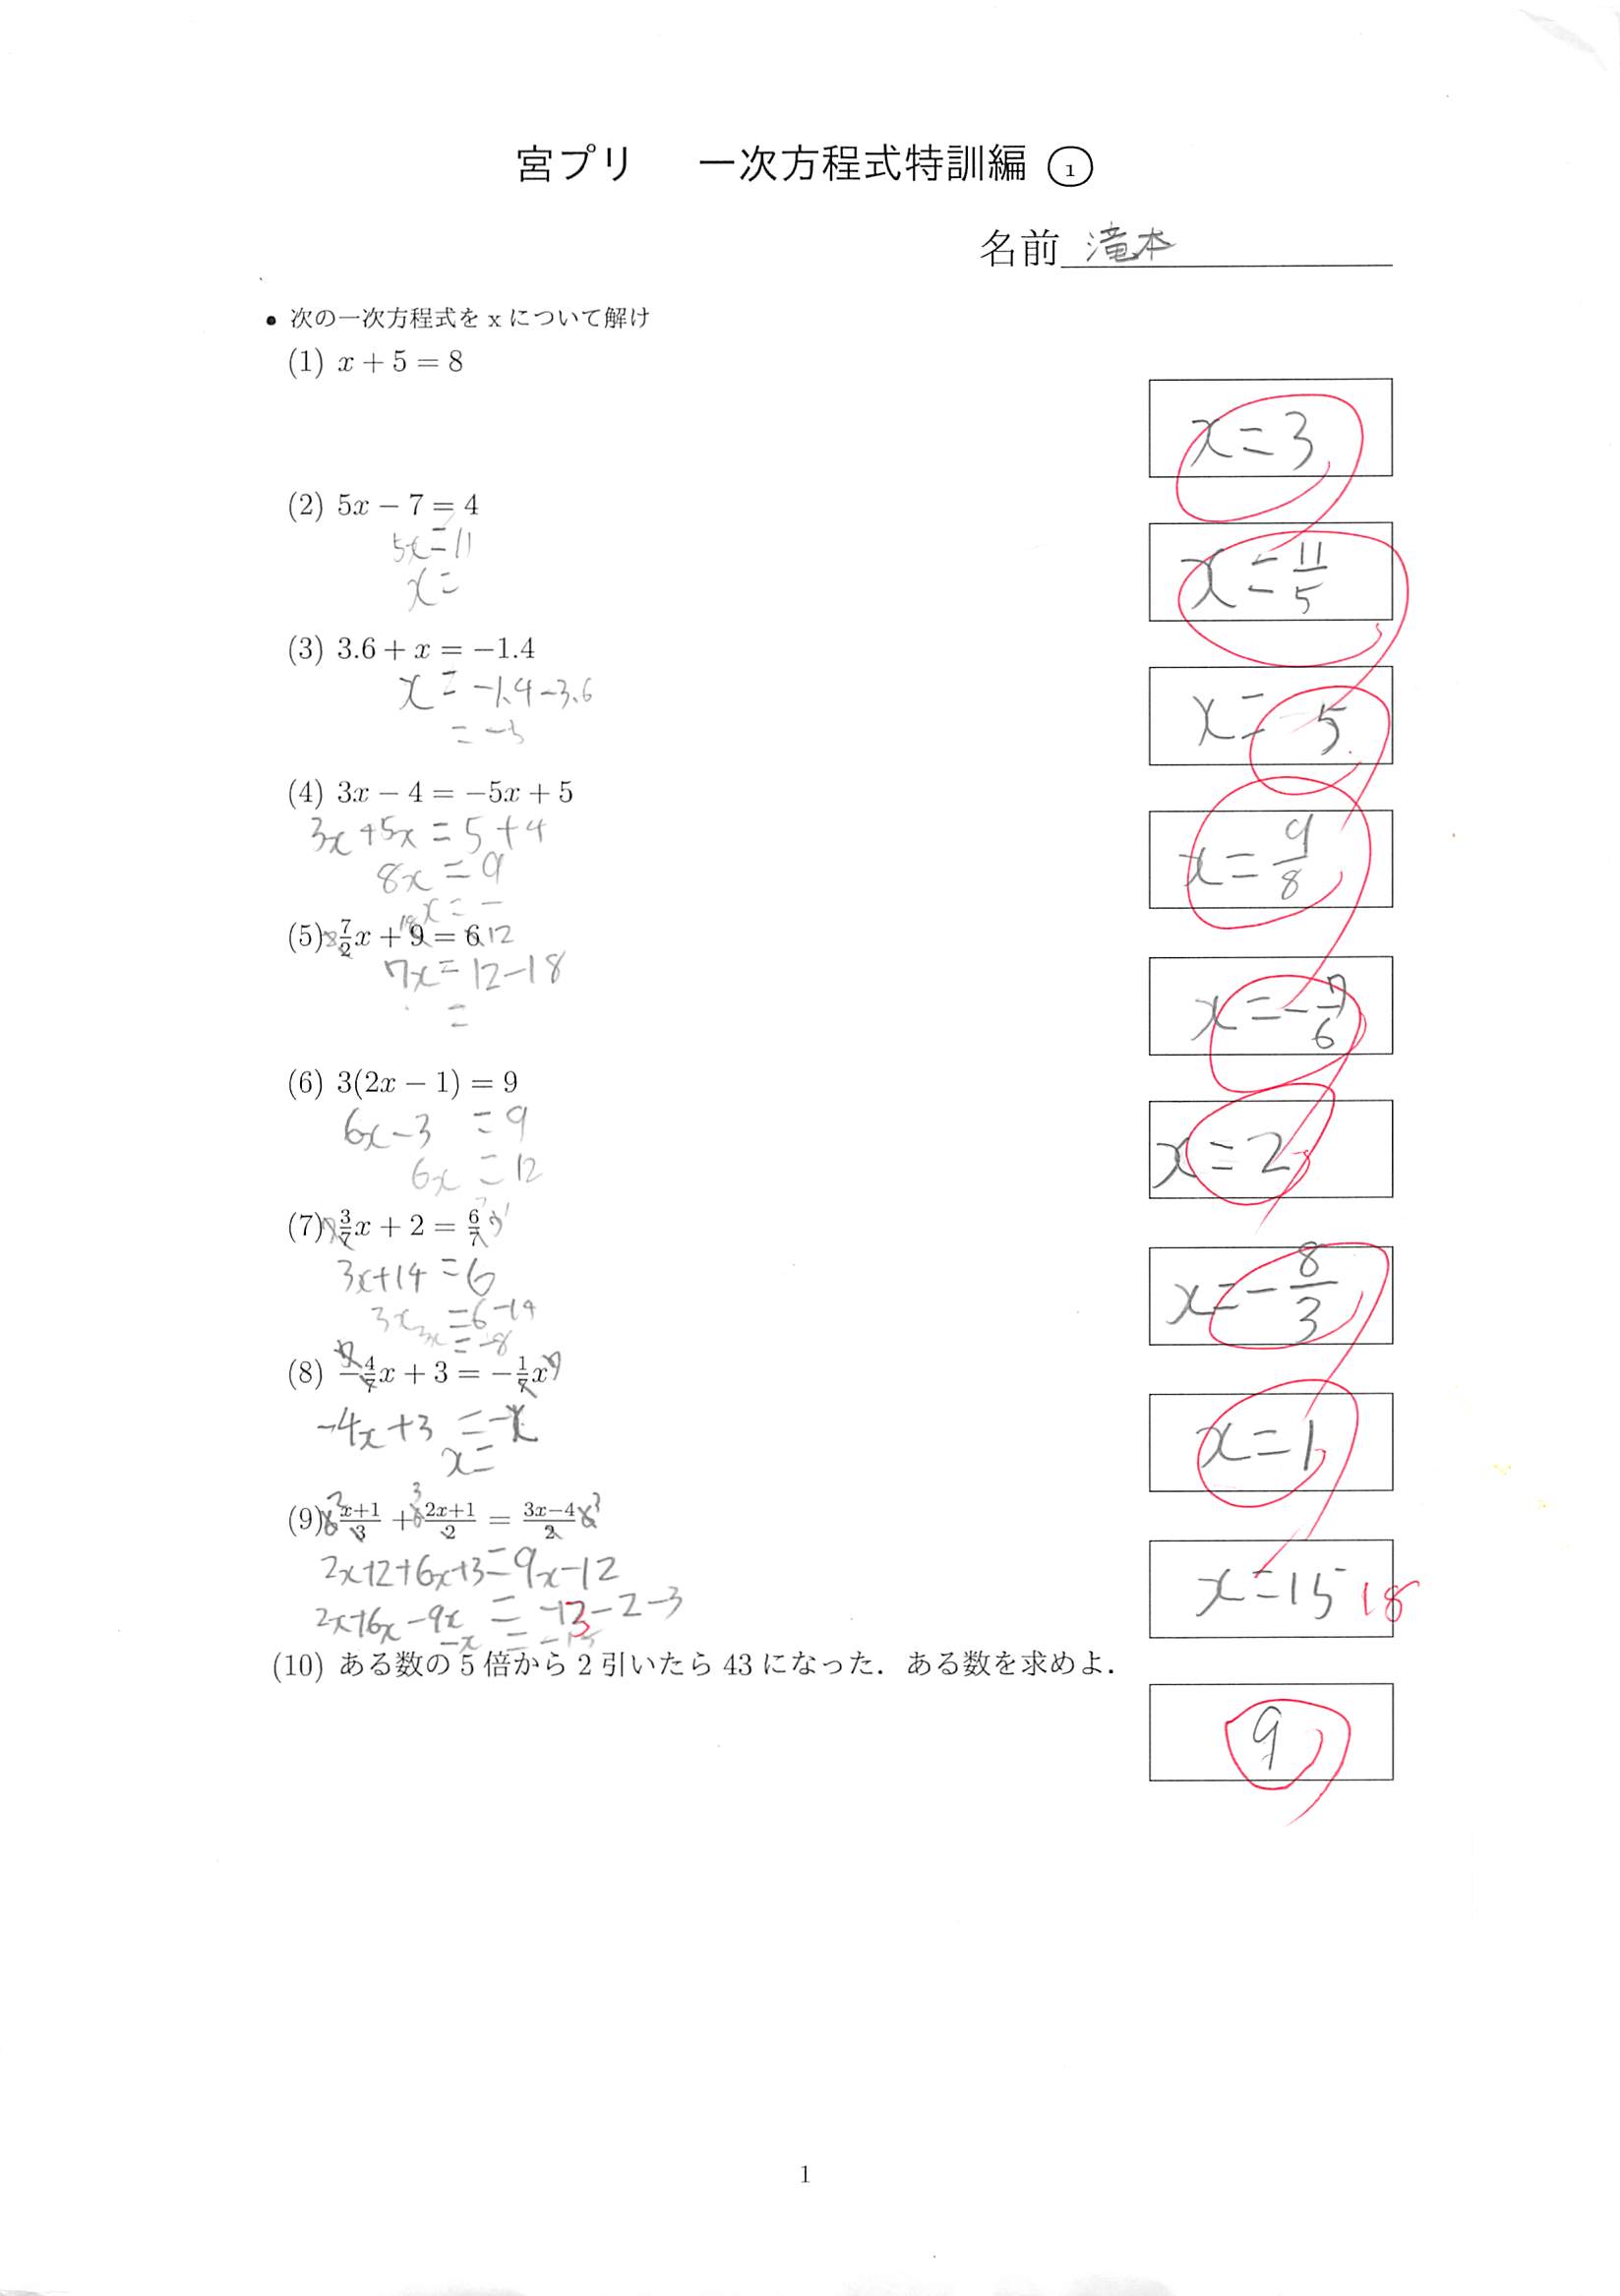 宮プリ 一次方程式特訓編 ①
名前 滝本
• 次の一次方程式を x について解け
(1) x + 5 = 8
x = 3
(2) 5x − 7 = 4
5x = 11
x =
x = 11/5
(3) 3.6 + x = −1.4
x = −1.4 − 3.6
= −5
x = −5
(4) 3x − 4 = −5x + 5
3x + 5x = 5 + 4
8x = 9
x = −
x = 9/8
(5) 7/2 x + 9 = 6
18 12
7x = 12 − 18
=
x = − 7/6
(6) 3(2x − 1) = 9
6x − 3 = 9
6x = 12
x = 2
(7) 3/7 x + 2 = 6/7
3x + 14 = 6
3x = 6 − 14
3x = −8
x = − 8/3
(8) − 4/7 x + 3 = − 1/7 x
−4x + 3 = −x
x =
x = 1
(9) x+1/3 + 2x+1/2 = 3x−4/2
2x + 2 + 6x + 3 = 9x − 12
2x + 6x − 9x = −13 − 2 − 3
−x = −15
x = 15 18
(10) ある数の 5 倍から 2 引いたら 43 になった．ある数を求めよ．
9
1